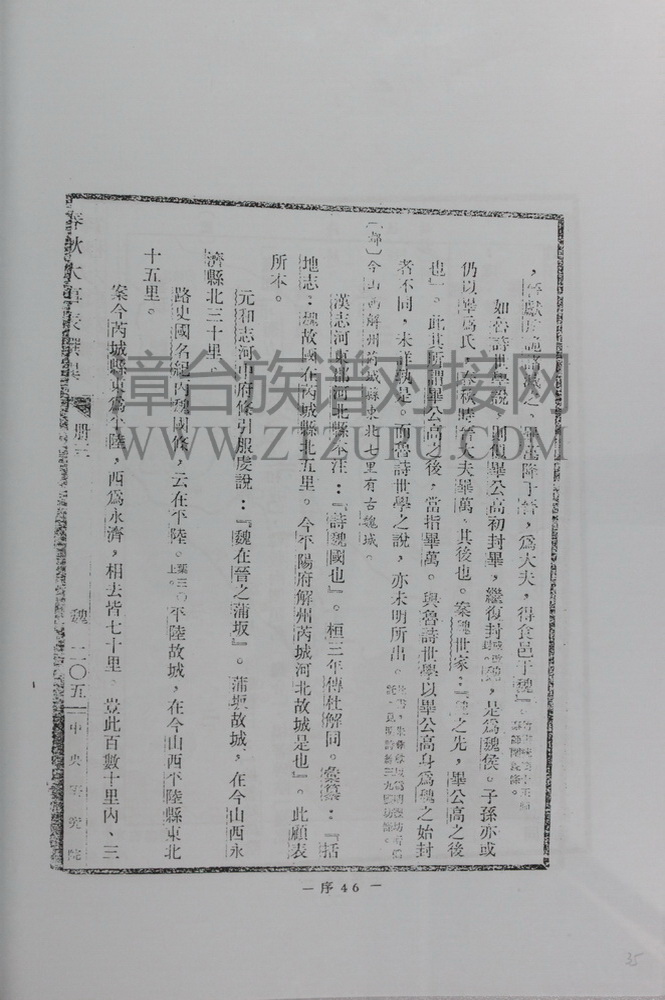 爲大夫，得食邑于魏』。
如魯詩世學說，則似畢公高初封畢，繼復封魏，是爲魏侯。子孫亦或
仍以畢爲氏，春秋時晉大夫畢萬，其後也。案魏世家：『魏之先，畢公高之後
也』。此其所謂畢公高之後，當指畢萬。與魯詩世學以畢公高身爲魏之始封
者不同，未詳孰是。而魯詩世學之說，亦未明所出。
〔都〕今山西解州芮城縣東北七里有古魏城。
漢志河東郡河北縣本注：『詩魏國也』。桓三年傳杜解同。彙纂：『括
地志：魏故國在芮城縣北五里。今平陽府解州芮城河北故城是也』。此顧表
所本。
元和志河中府條引服虔說：『魏在晉之蒲坂』。蒲坂故城，在今山西永
濟縣北三十里。
路史國名紀丙魏國條，云在平陸。平陸故城，在今山西平陸縣東北
十五里。
案今芮城縣東爲平陸，西爲永濟，相去皆七十里。豈此百數十里內、三
春秋大事表譔異 册三 魏 二〇五 中央研究院
— 序 46 —
章台族譜对接网
WWW.ZTZUPU.COM
35